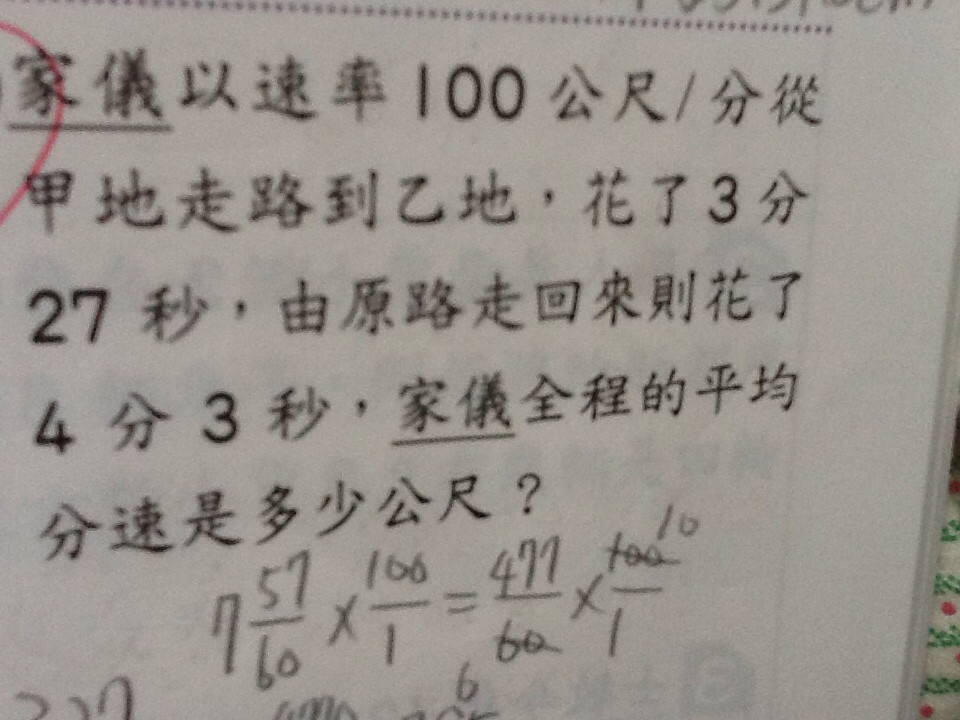 家儀以速率100公尺/分從
甲地走路到乙地，花了3分
27秒，由原路走回來則花了
4分3秒，家儀全程的平均
分速是多少公尺？
7 57/60 × 100/1 = 477/60 × 100/1 10
6